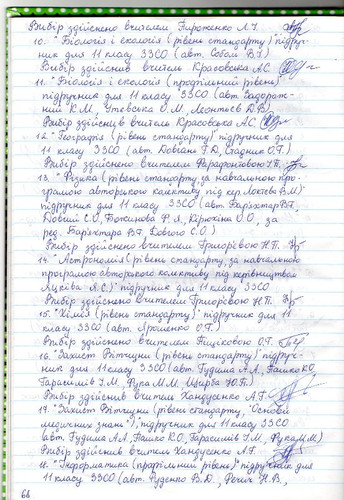 Вибір здійснено вчителем Пироженко Л.І.
10. "Біологія і екологія (рівень стандарту)" підруч-
ник для 11 класу ЗЗСО (авт. Соболь В.І.)
Вибір здійснив вчитель Красовська А.С.
11. "Біологія і екологія (профільний рівень)
підручник для 11 класу ЗЗСО (авт. Задорож-
ний К.М., Утєвська О.М., Леонтьєв Д.В.)
Вибір здійснив вчитель Красовська А.С.
12. "Географія (рівень стандарту)" підручник для
11 класу ЗЗСО (авт. Довгань Г.Д., Стадник О.Г.)
Вибір здійснено вчителем
13. "Фізика (рівень стандарту, за навчальною про-
грамою авторського колективу під кер. Локтєва В.М)"
підручник для 11 класу ЗЗСО (авт. Бар'яхтар В.Г.,
Довгий С.О., Божинова Ф.Я., Кірюхіна О.О., за
ред. Бар'яхтара В.Г., Довгого С.О.)
Вибір здійснено вчителем Григорєвою Н.П.
14. "Астрономія (рівень стандарту, за навчальною
програмою авторського колективу під керівництвом
Яцківа Я.С.)" підручник для 11 класу ЗЗСО
Вибір здійснено вчителем Григорєвою Н.П.
15. "Хімія (рівень стандарту)" підручник для 11
класу ЗЗСО (авт. Ярошенко О.Г.)
Вибір здійснено вчителем О.Г.
16. "Захист Вітчизни (рівень стандарту)" підруч-
ник для 11 класу ЗЗСО (авт. Гудима А.А., Пашко К.О,
Гарасимів І.М, Фука М.М, Щирба Ю.П.)
Вибір здійснив вчитель Хандусенко А.Г.
17. "Захист Вітчизни (рівень стандарту, "Основи
медичних знань"), підручник для 11 класу ЗЗСО
(авт. Гудима А.А, Пашко К.О, Гарасимів І.М, Фука М.М)
Вибір здійснив вчитель Хандусенко А.Г.
18. "Інформатика (профільний рівень)" підручник для
11 класу ЗЗСО (авт. Руденко В.Д., Речич Н.В.,
66